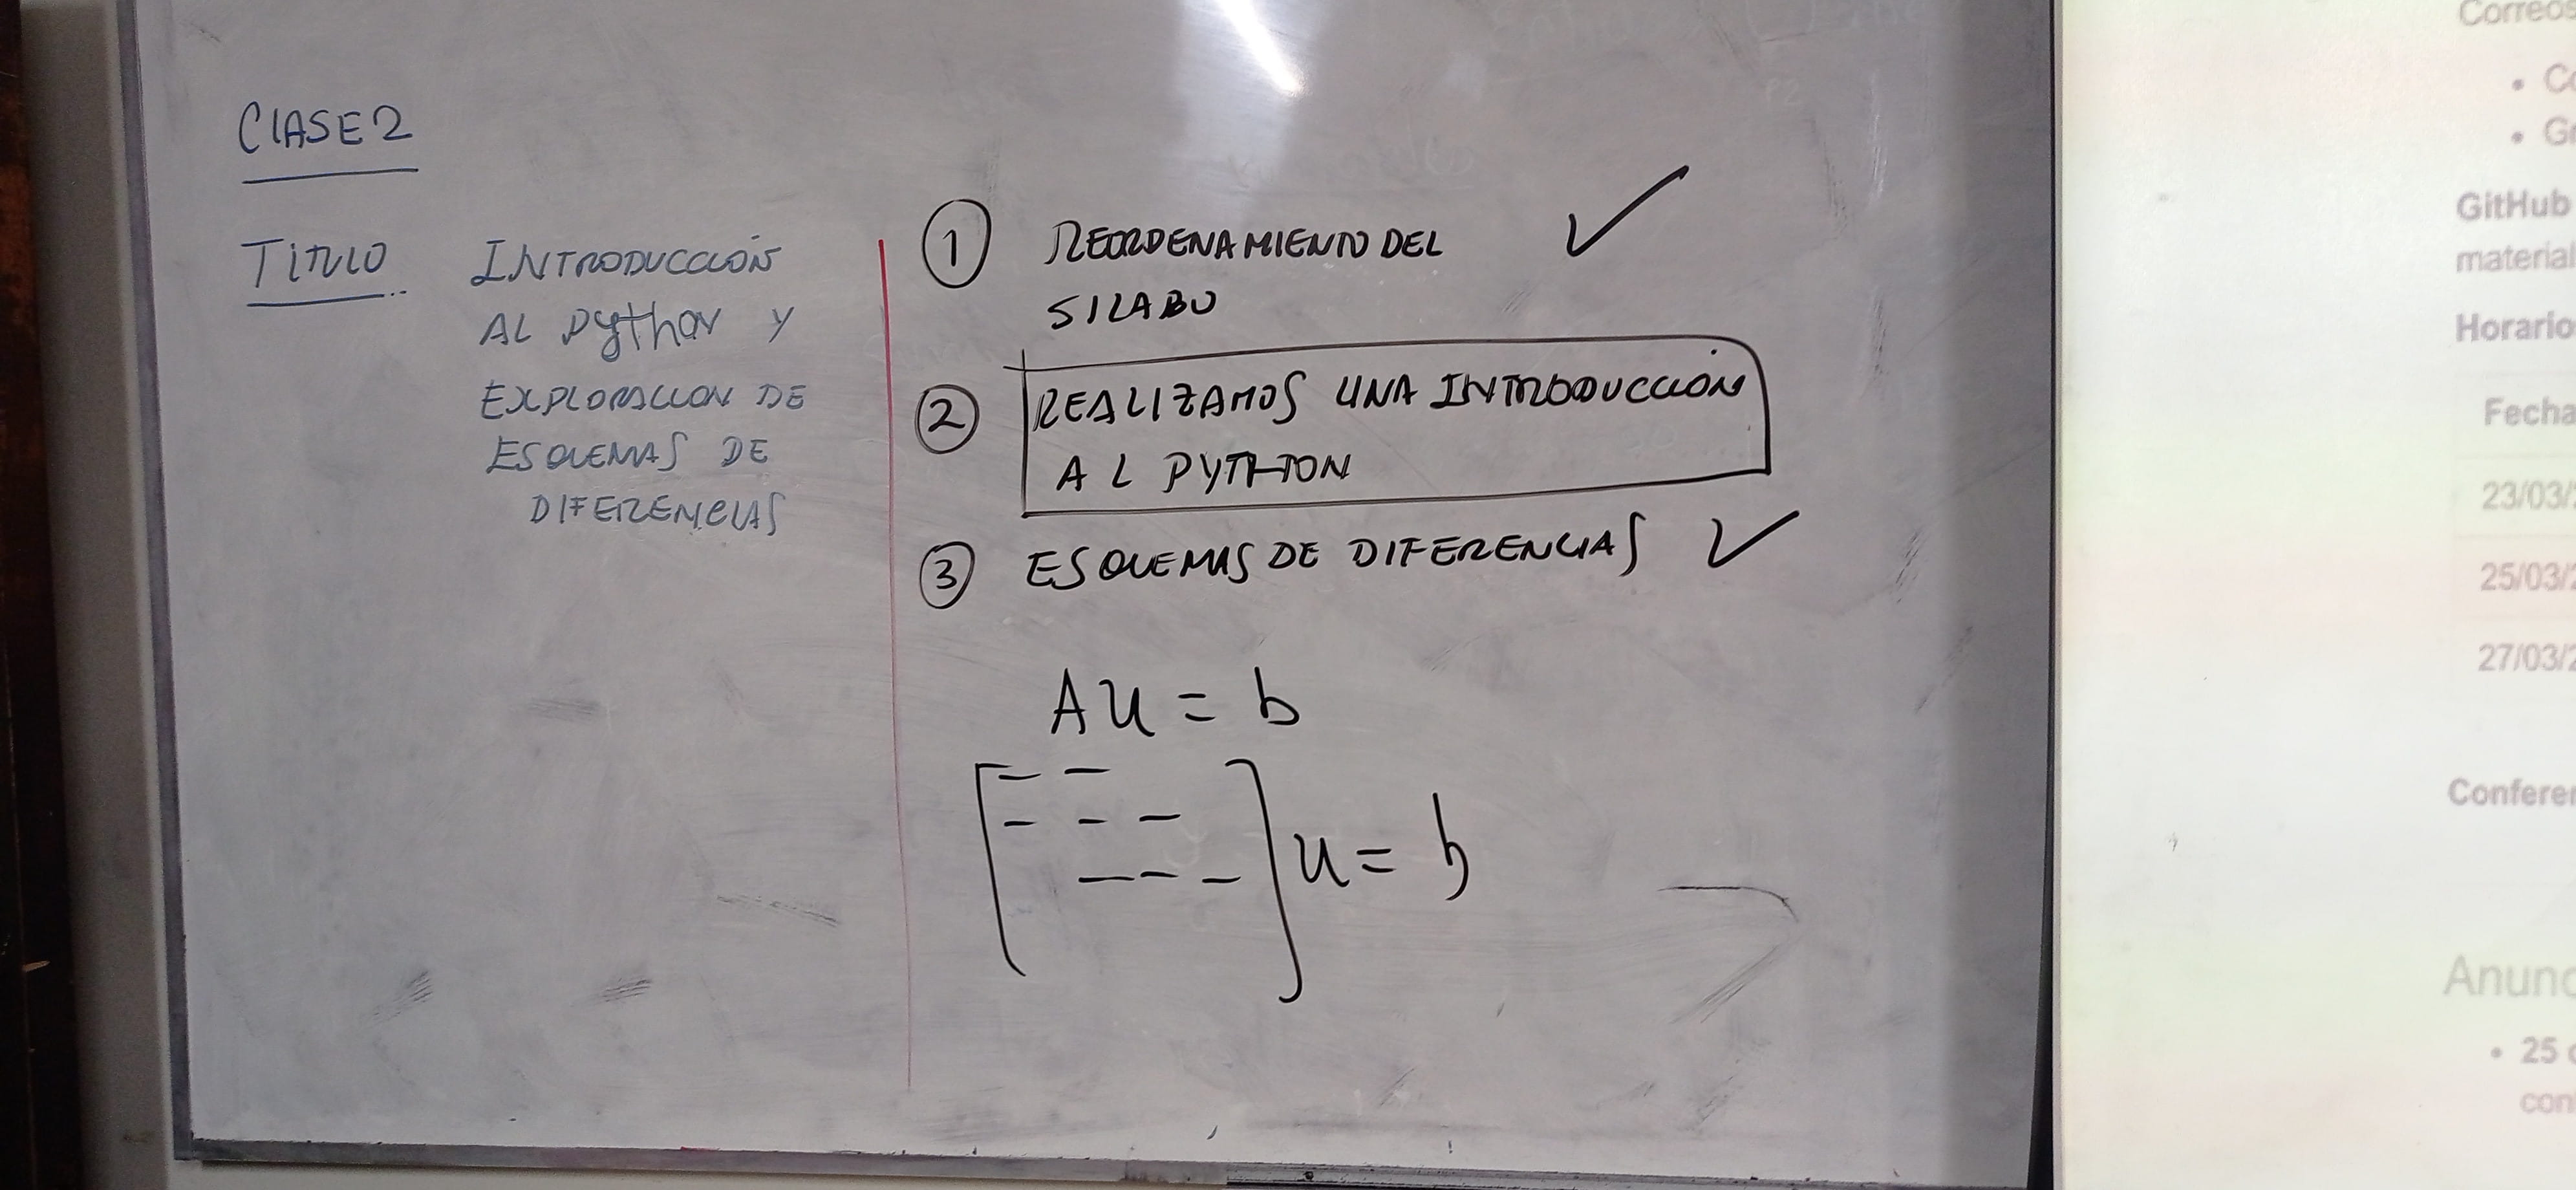 CLASE 2
TITULO
INTRODUCCIÓN
AL PythoN Y
EXPLORACION DE
ESQUEMAS DE
DIFERENCIAS
1 REORDENAMIENTO DEL ✓
SILABO
2 REALIZAMOS UNA INTRODUCCIÓN
AL PYTHON
3 ESQUEMAS DE DIFERENCIAS ✓
AU = b
[ — —
— — —
— — — ] u = b
Correos
GitHub
material
Horario
Fecha
23/03/
25/03/2
27/03/2
Conferen
Anunc
• 25
con